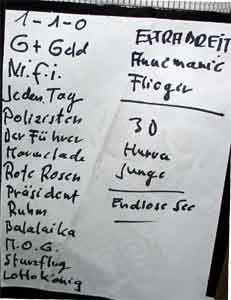 1-1-0
G+Geld
Ni.f.i.
Jeden Tag
Polizisten
Der Führer
Marmelade
Rote Rosen
Präsident
Ruhm
Balalaika
M.O.G.
Sturzflug
Lottokönig
EXTRABREIT
Annemarie
Flieger
3D
Hurra
Junge
Endlose See